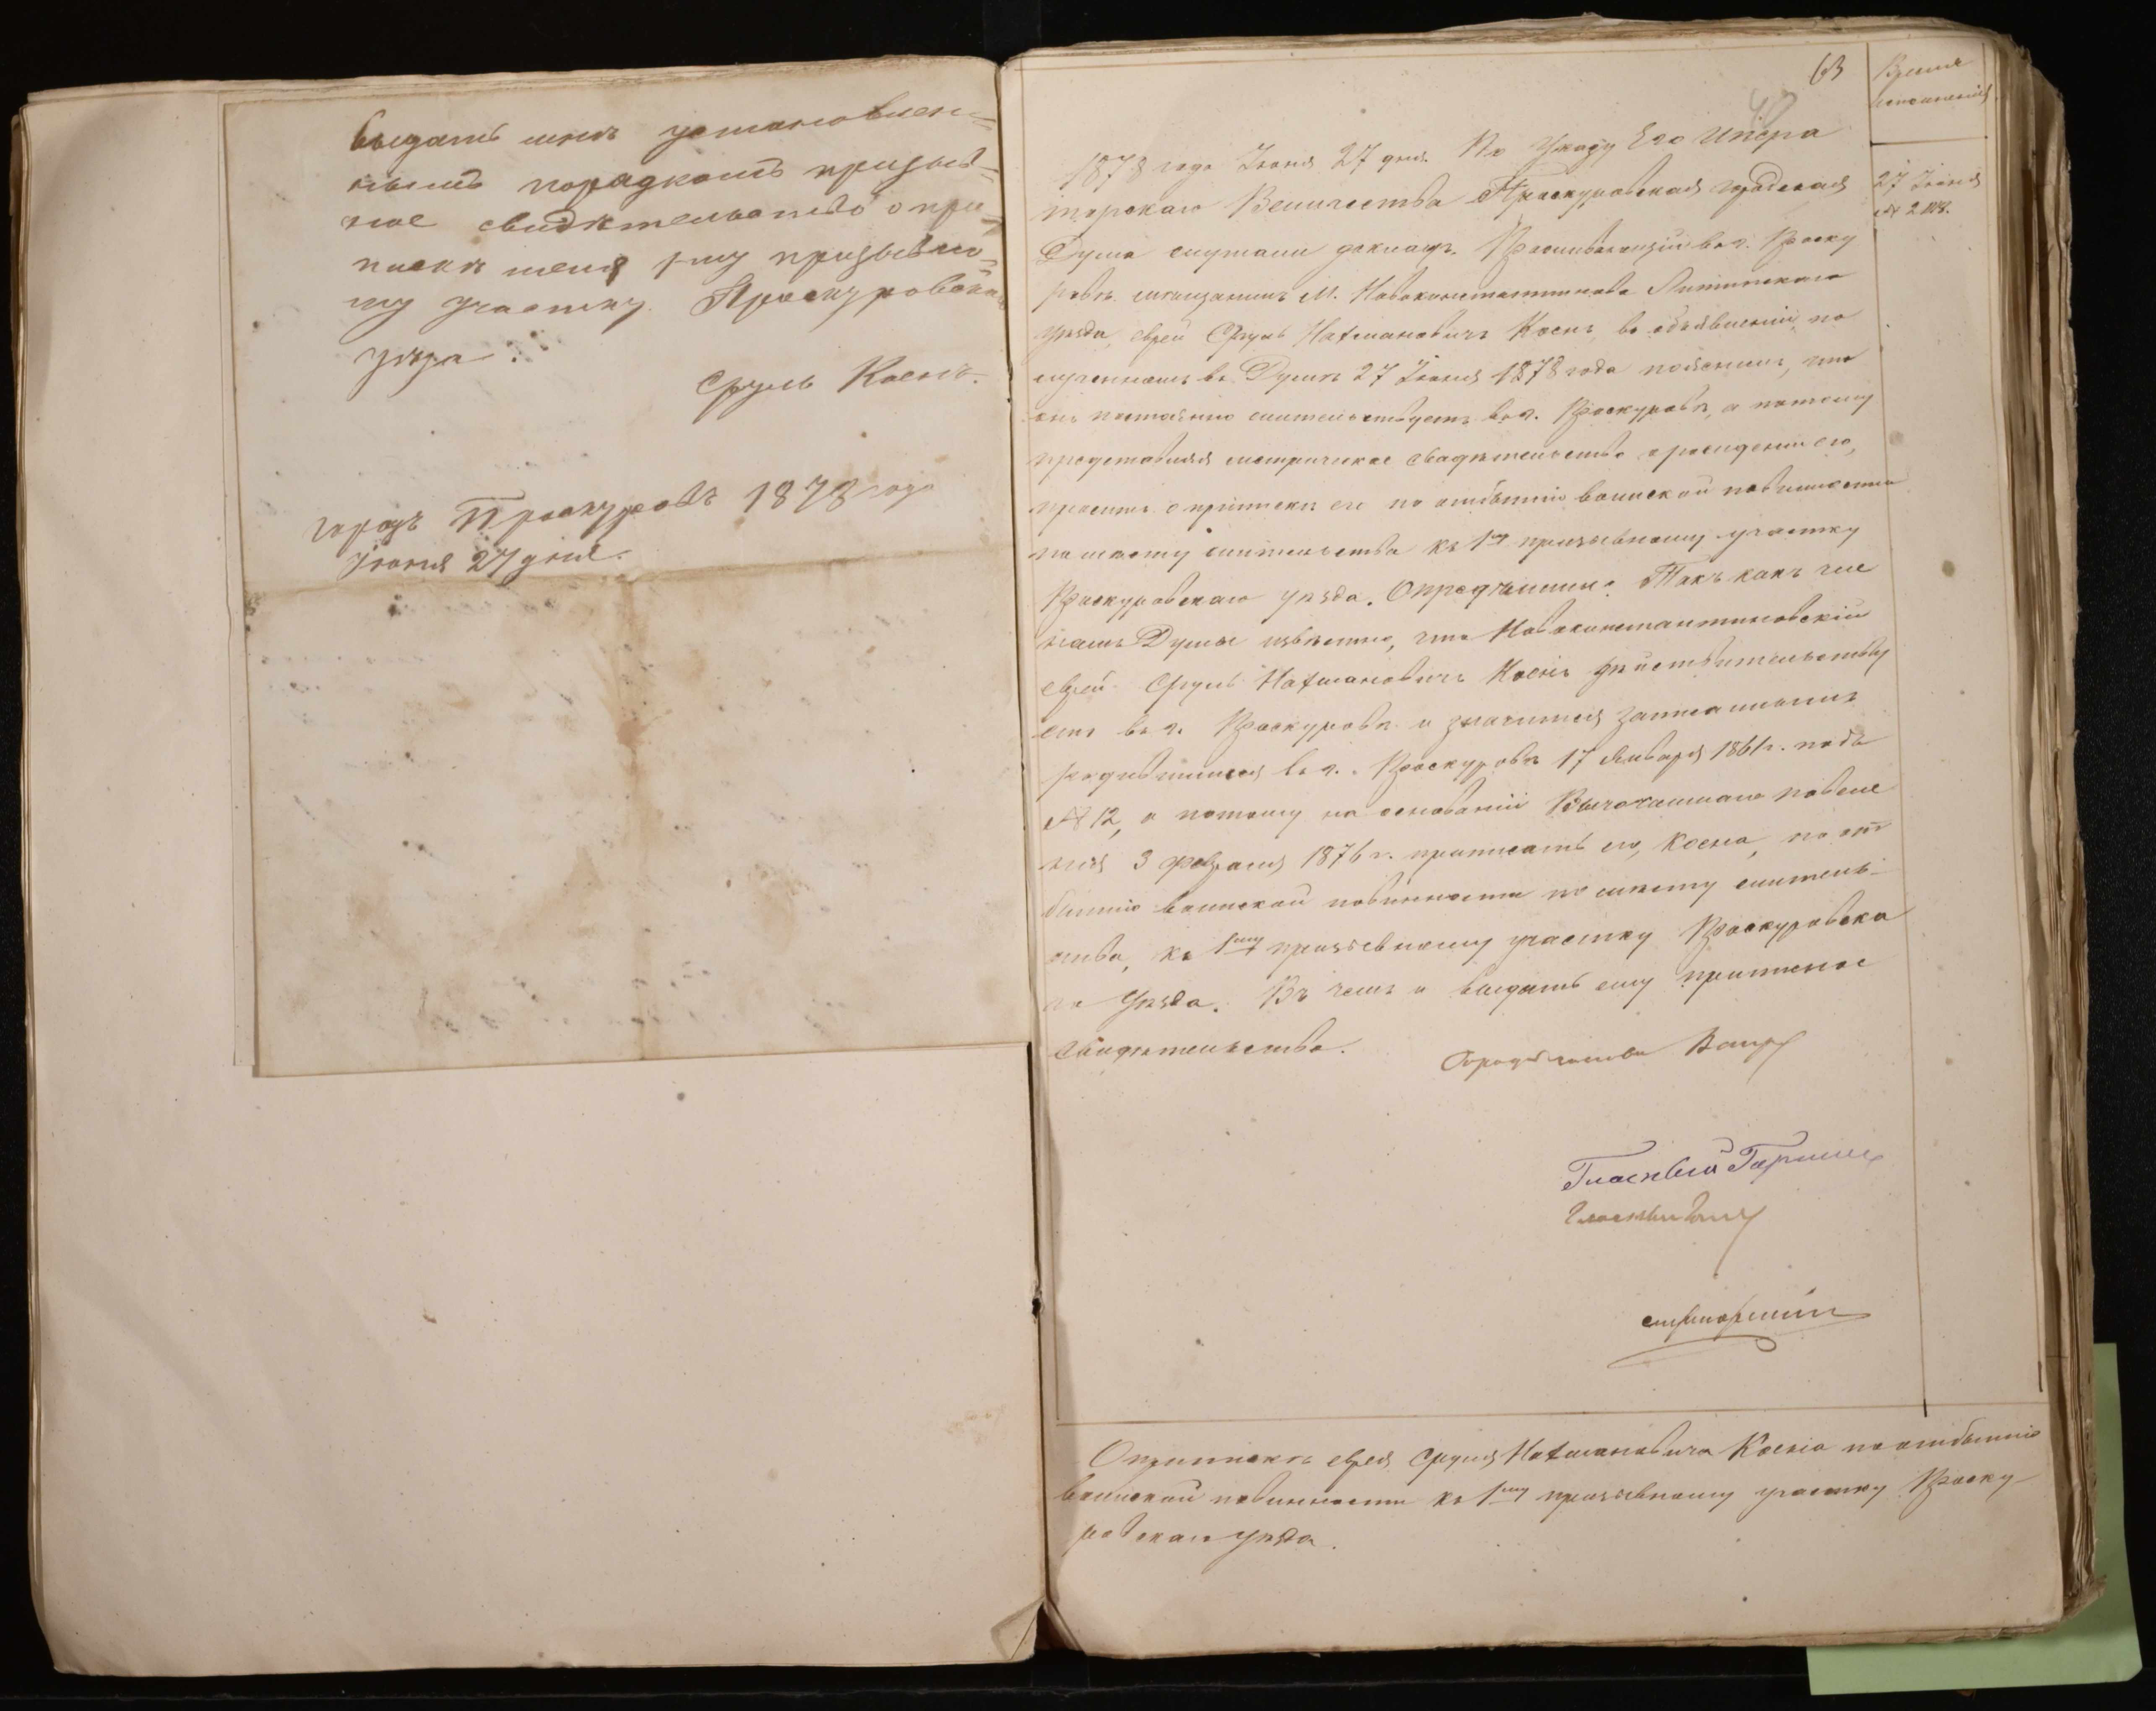 выдать мнѣ установлен=
нымъ порядкомъ призыв=
ное свидѣтельство о при=
пискѣ меня 1-му призывно=
му участку Проскуровскаго
уѣзда.
Сруль Коенъ.
городъ Проскуровъ 1878 года
Іюня 27 дня.
63
Время
исполненія
27 Іюня
№ 2108.
1878 года Іюня 27 дня. По Указу Его Импера
торскаго Величества Проскуровская городская
Дума слушали докладъ. Проживающій въ г. Проску
ровѣ мѣщанинъ м. Новоконстантинова Литинскаго
уѣзда, еврей Сруль Нахмановичъ Коенъ, въ объявленіи, по
лученномъ въ Думѣ 27 Іюня 1878 года пояснилъ, что
онъ постоянно жительствуетъ въ г. Проскуровѣ, а потому
представляя метрическое свидѣтельство о рожденіи его,
проситъ о припискѣ его по отбытію воинской повинности
по мѣсту жительства къ 1му призывному участку
Проскуровскаго уѣзда. Опредѣлили: Такъ какъ чле
намъ Думы извѣстно, что Новоконстантиновскій
еврей Сруль Нахмановичъ Коенъ жительству
етъ въ г. Проскуровѣ и значится записаннымъ
родившимся въ г. Проскуровѣ 17 Января 1861 г. подъ
№ 12, а потому на основаніи Высочайшаго повеле
нія 3 февраля 1876 г. приписать его, Коена, по от
бытію воинской повинности по мѣсту житель-
ства, къ 1му призывному участку Проскуровска
го Уѣзда. Въ чемъ и выдать ему приписное
свидѣтельство.
Городской голова
Гласный
Гласный
О припискѣ еврея Сруля Нахмановича Коена по отбытію
воинской повинности къ 1му призывному участку Проску-
ровскаго уѣзда.